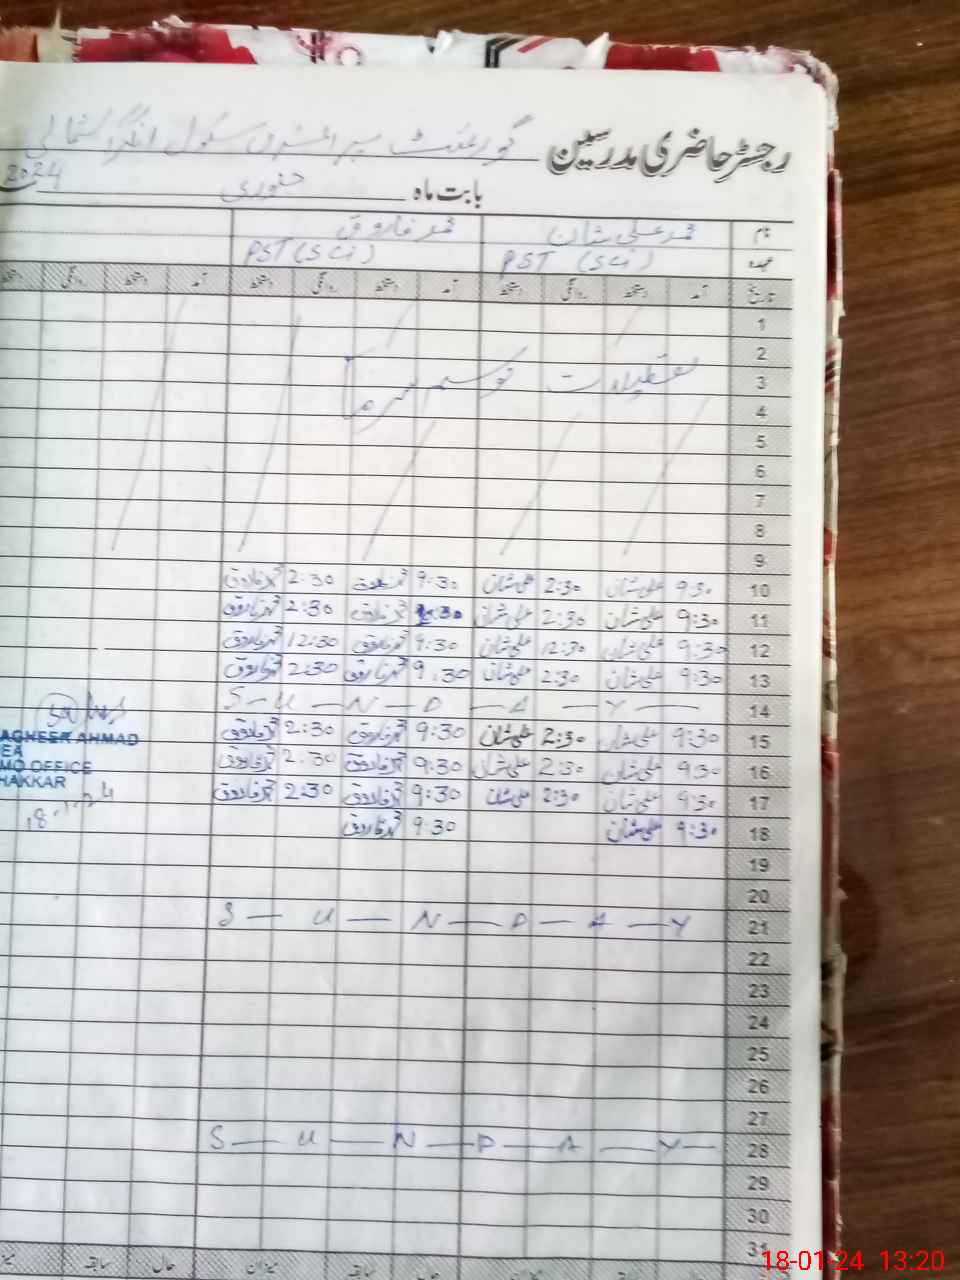 رجسٹر حاضری مدرسین گورنمنٹ پرائمری سکول
بابت ماہ جنوری 2024
نام محمد علی شان محمد فاروق
عہدہ PST (Sci) PST (Sci)
تاریخ آمد دستخط روانگی دستخط آمد دستخط روانگی دستخط آمد دستخط روانگی دستخط
1
2
3 تعطیلات موسم سرما
4
5
6
7
8
9
10 9:30 علی شان 2:30 علی شان 9:30 محمد فاروق 2:30 محمد فاروق
11 9:30 علی شان 2:30 علی شان محمد فاروق 2:30 محمد فاروق
12 9:30 علی شان 12:30 علی شان 9:30 محمد فاروق 12:30 محمد فاروق
13 9:30 علی شان 2:30 علی شان 9:30 محمد فاروق 2:30 محمد فاروق
14 S-U-N-D-A-Y
15 9:30 علی شان 2:30 علی شان 9:30 محمد فاروق 2:30 محمد فاروق
16 9:30 علی شان 2:30 علی شان 9:30 محمد فاروق 2:30 محمد فاروق
17 9:30 علی شان 2:30 علی شان 9:30 محمد فاروق 2:30 محمد فاروق
18 9:30 علی شان 9:30 محمد فاروق
19
20
21 S-U-N-D-A-Y
22
23
24
25
26
27
28 S-U-N-D-A-Y
29
30
31
میزان سابقہ حال میزان سابقہ حال
AGHEER AHMAD
EA
MO OFFICE
HAKKAR
18-1-24
18-01-24 13:20